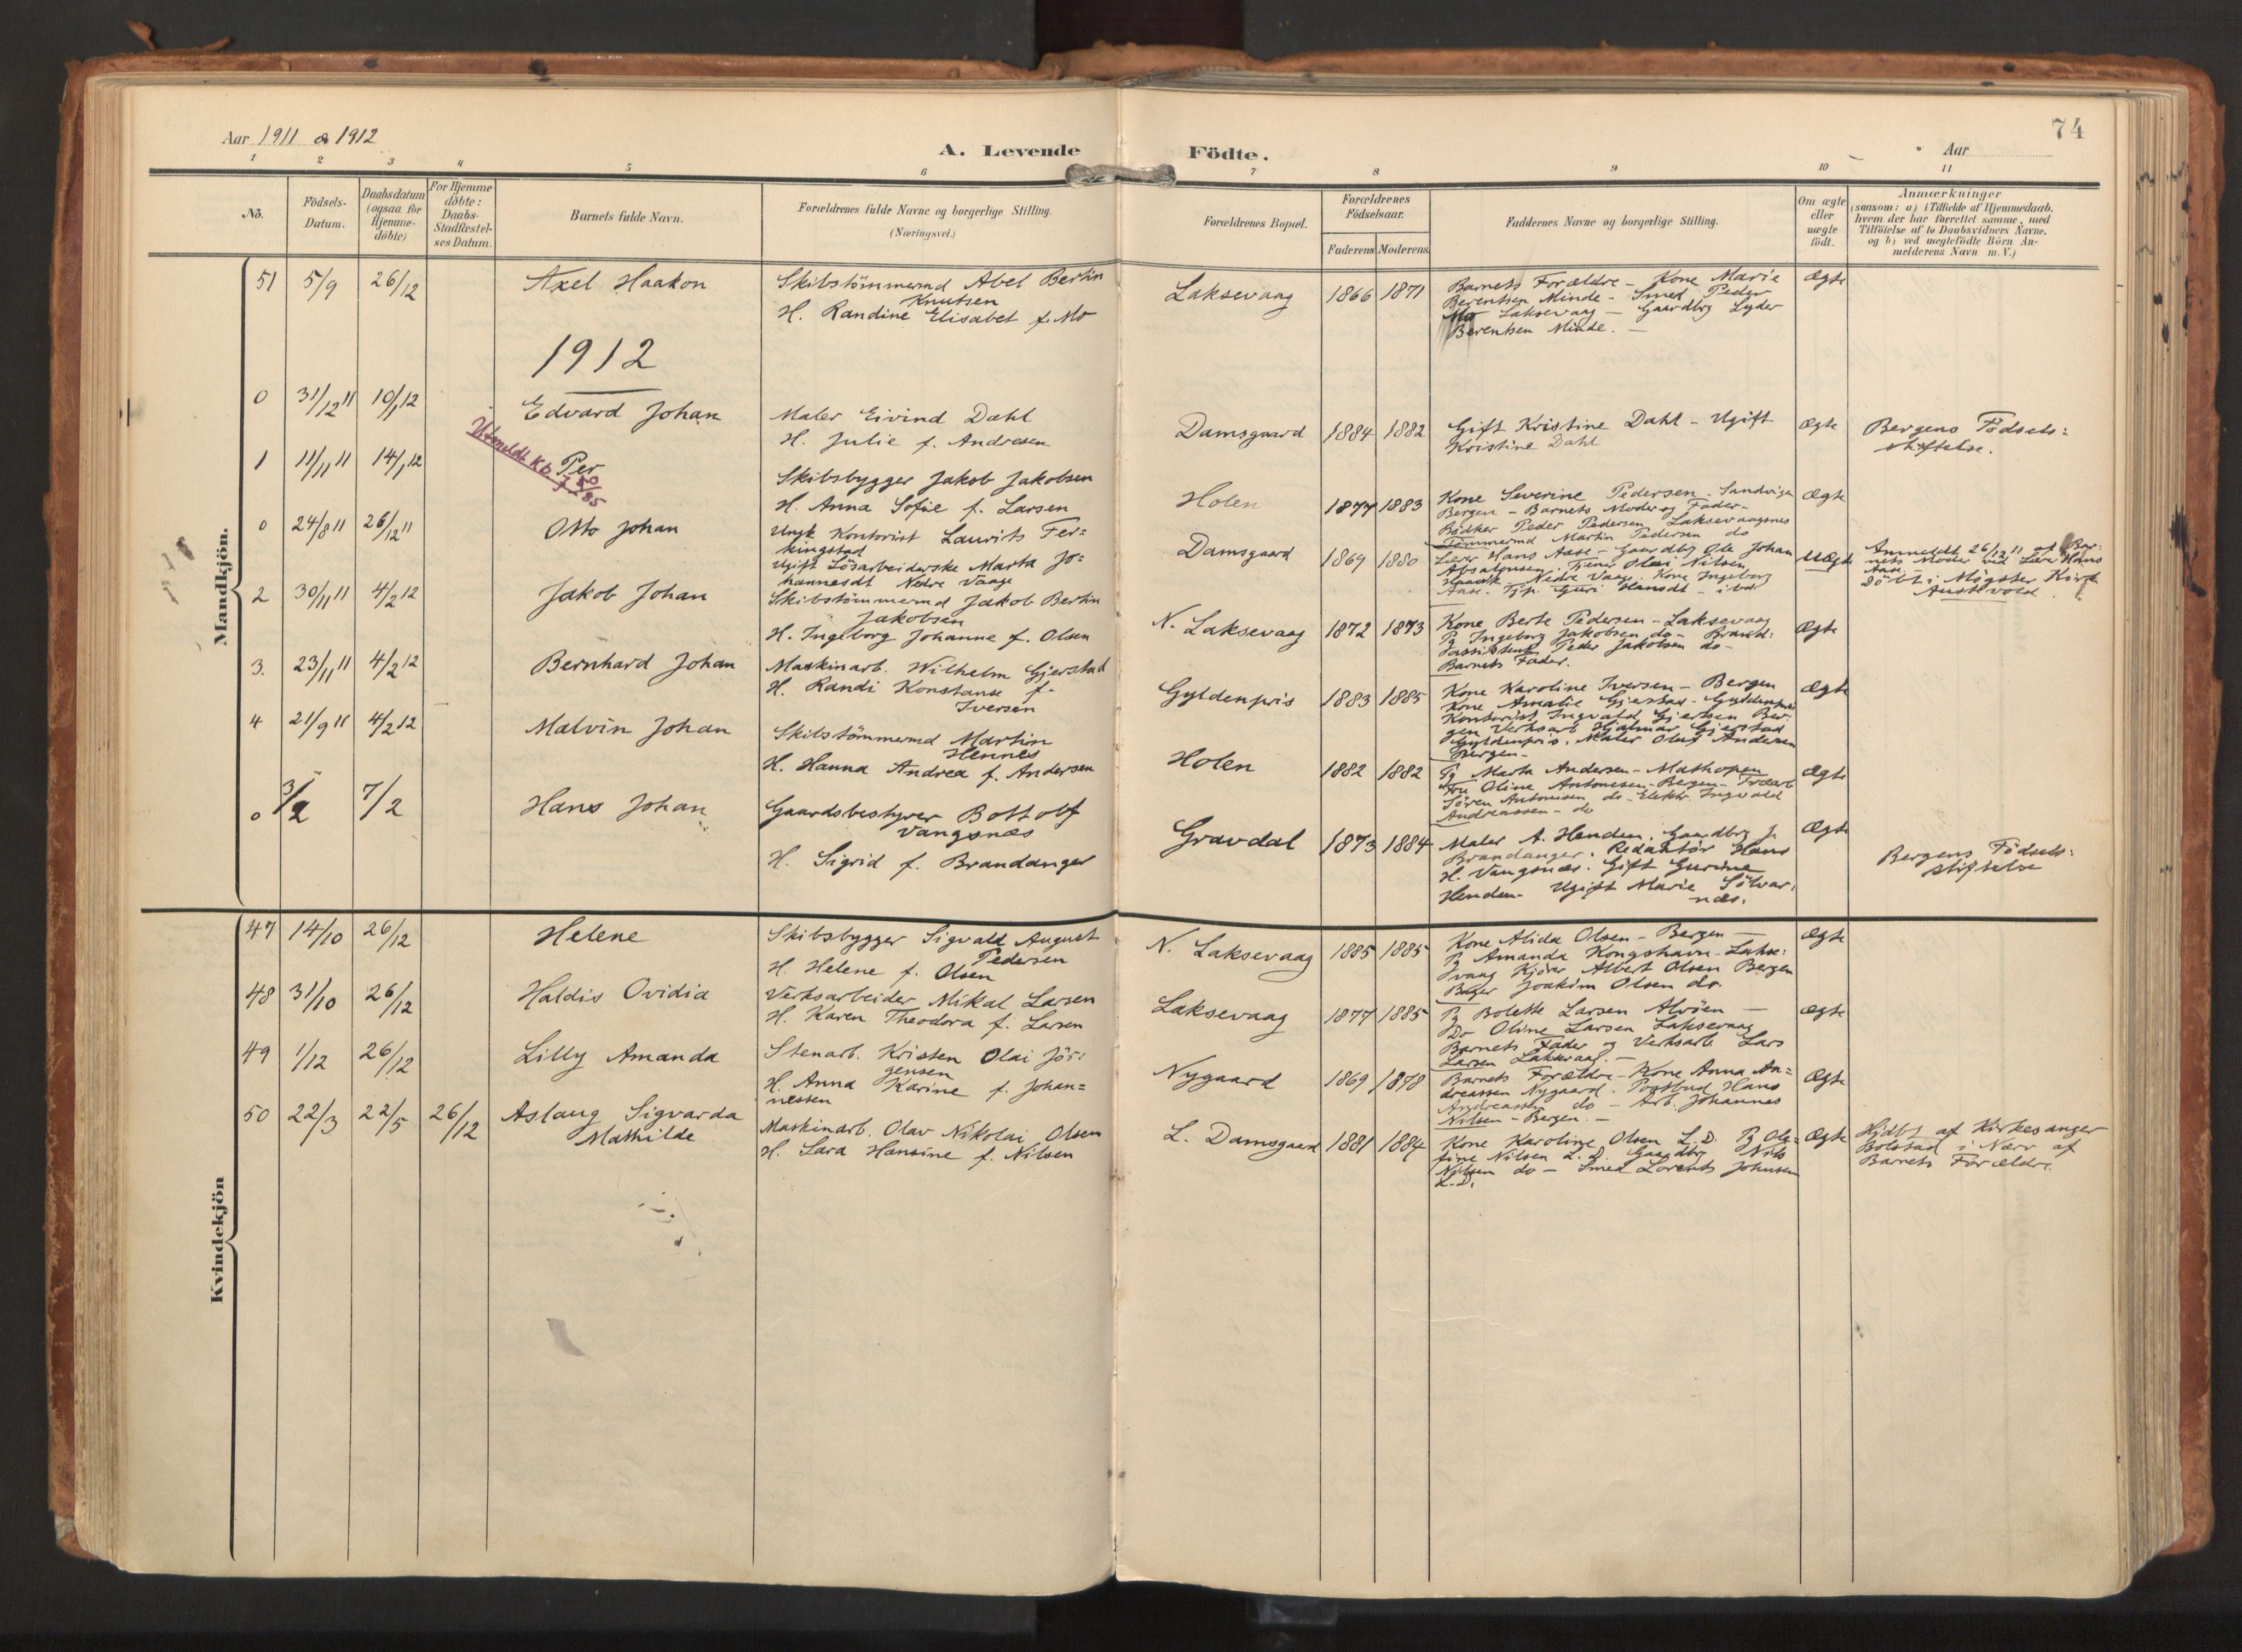 74
Aar 1911 & 1912
A. Levende Födte.
Aar
1 2 3 4 5 6 7 8 9 10 11
No.
Födsels-
Datum.
Daabsdatum
(ogsaa for
Hjemme-
döbte)
For Hjemme
döbte:
Daabs-
Stadfæstel-
ses Datum.
Barnets fulde Navn.
Forældrenes fulde Navne og borgerlige Stilling.
(Næringsvei.)
Forældrenes Bopæl.
Forældrenes
Födselsaar.
Faderens Moderens
Faddernes Navne og borgerlige Stilling.
Om ægte
eller
uægte
födt.
Anmærkninger
(saasom: a) i Tilfælde af Hjemmedaab,
hvem der har forrettet samme, med
Tilföielse af to Daabsvidners Navne.
og b) ved uægtefödte Börn An-
melderens Navn m.V.)
Mandkjön.
51 5/9 26/12 Axel Haakon
Skibstömmermd Abel Bertin
Knutsen
H. Randine Elisabet f. Mo
Laksevaag 1866 1871
Barnets Forældre - Kone Marie
Berentsen Minde - Smed Peder
Mo Laksevaag - Gaardbrg Lyder
Berentsen Minde. -
Ægte
1912
0 31/12 11 10/1 12 Edvard Johan
Maler Eivind Dahl
H. Julie f. Andresen
Damsgaard 1884 1882
Gift Kristine Dahl - Ugift
Kristine Dahl
Ægte
Bergens Födsels:
stiftelse.
Utmeldt Kb
1 11/11 11 14/1 12 Per
Skibsbygger Jakob Jakobsen
H. Anna Sofie f. Larsen
Holen 1877 1883
Kone Severine Pedersen - Sandvigen
Bergen - Barnets Moder og Fader -
Bödker Peder Pedersen Laksevaagsnes
Tömmermd Martin Pedersen do
Ægte
0 24/8 11 26/12 11 Otto Johan
Ungk Kontorist Laurits Fer=
kingstad
Ugift Lösarbeiderske Marta Jo=
hannesdt Nedre Vaage
Damsgaard 1869 1880
Lærer Hans Aase - Gaardbrg Ole Johan
Absalonsen. Tjener Olai Nilsen
Nedre Vaage. Kone Ingeborg
Aase. Tjp. Guri Hansdt - ibd
Uægte
Anmeldt 26/12 11 af Bar:
nets Moder ved Lærer Hans
Aase -
Döbt i Mögster Kirke
Austevold
2 30/11 11 4/2 12 Jakob Johan
Skibstömmermd Jakob Bertin
Jakobsen
H. Ingeborg Johanne f. Olsen
N. Laksevaag 1872 1873
Kone Berte Pedersen - Laksevaag
Pg Ingeborg Jakobsen do - Brand:
assistent Peder Jakobsen do -
Barnets Fader.
Ægte
3. 23/11 11 4/2 12 Bernhard Johan
Maskinarb. Wilhelm Gjerstad
H. Randi Konstanse f.
Iversen
Gyldenpris 1883 1885
Kone Karoline Iversen - Bergen
Kone Amalie Gjerstad - Gyldenpris
Kontorist Ingvald Gjertsen Ber:
gen Verksarb Hjalmar Gjerstad
Gyldenpris. Maler Oluf Andersen
Bergen -
Ægte
4 21/9 11 4/2 12 Malvin Johan
Skibstömmermd Martin
Hennes
H. Hanna Andrea f. Andersen
Holen 1882 1882
Pg Marta Andersen - Mathopen
Fru Oline Antonesen - Bergen -
Sören Antonisen do - Elektr. Ingvald
Andreassen - do
Ægte
0 3/2 7/2 Hans Johan
Gaardsbestyrer Bottolf
Vangsnæs
H. Sigrid f. Brandanger
Gravdal 1873 1884
Maler A. Henden. Gaardbrg J.
Brandanger. Redaktör Hans
H. Vangsnæs. Gift Gurine
Henden - Ugift Marie Sölvar:
næs.
Ægte
Bergens Födsels:
stiftelse
Kvindekjön
47 14/10 26/12 Helene
Skibsbygger Sigvald August
Pedersen
H. Helene f. Olsen
N. Laksevaag 1885 1885
Kone Alida Olsen - Bergen -
Pg Amanda Kongshavn - Lakse:
vaag Kjörer Albert Olsen Bergen
Bager Joakim Olsen do.
Ægte
48 31/10 26/12 Haldis Ovidia
Verksarbeider Mikal Larsen
H. Karen Theodora f. Larsen
Laksevaag 1877 1885
Pg Bolette Larsen Alvöen -
Do Oline Larsen Laksevaag
Barnets Fader og Verksarb Lars
Larsen Laksevaag. -
Ægte
49 1/12 26/12 Lilly Amanda
Stenarb. Kristen Olai Jör:
gensen
H. Anna Karine f. Johan=
nessen
Nygaard 1869 1878
Barnets Forældre - Kone Anna An=
dreassen Nygaard. Postbud Hans
Andreassen do - Arb. Johannes
Nilsen - Bergen. -
Ægte
50 22/3 22/5 26/12 Aslaug Sigvarda
Mathilde
Maskinarb. Olav Nikolai Olsen
H. Sara Hansine f. Nilsen
L. Damsgaard 1881 1884
Kone Karoline Olsen L. D. Pg Ole=
fine Nilsen L. D. Gaardbrg Nils
Nilsen do - Smed Lorents Johnsen
L. D.
Ægte
Hjdbt af Kirkesanger
Bolstad i Nærv af
Barnets Forældre.